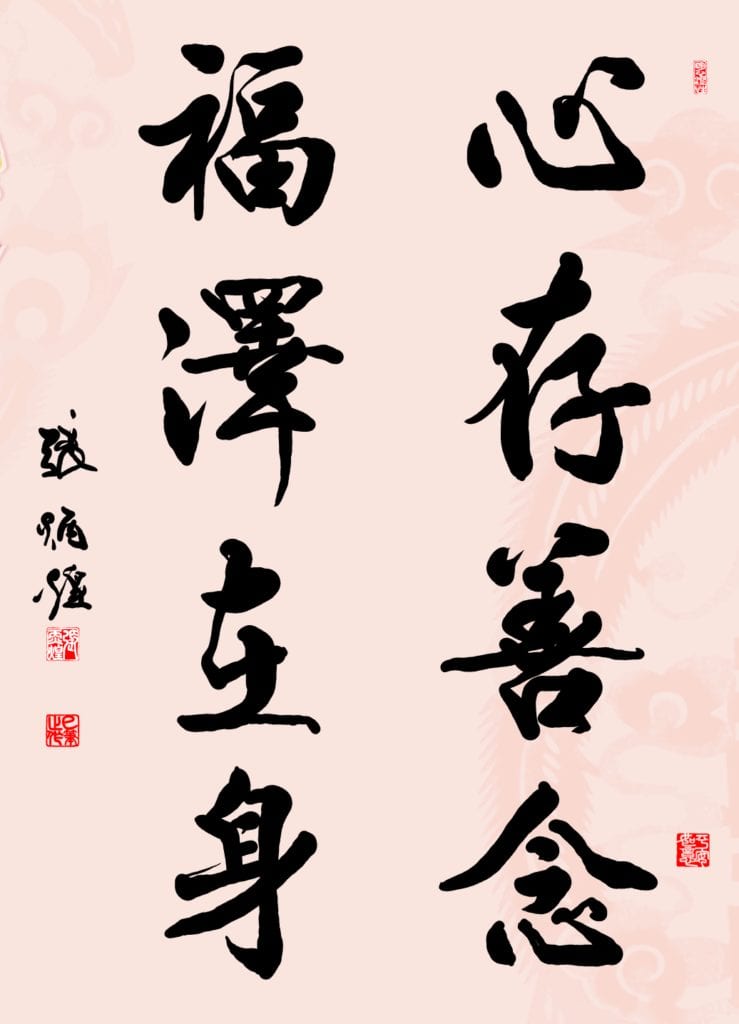 心存善念
福澤在身
張炳煌